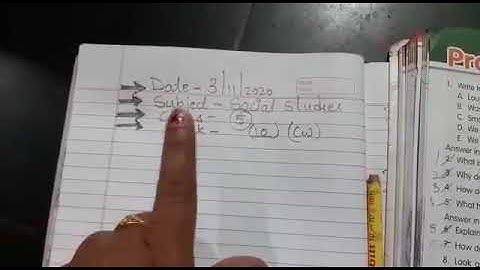 Date - 3/11/2020
Subject - Social Studies
- 5
- (CW)
Pro
1. Write
A.
B.
C.
D. We
E. We
Answer in
2. What is
3. Why do
4. How do
5. What
Answer in
6. Explain
7. How do
8. Look